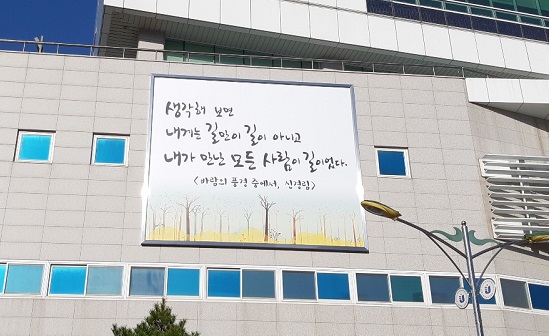 생각해 보면
내게는 길만이 길이 아니고
내가 만난 모든 사람이 길이었다.
<바람의 풍경 중에서, 신경림>